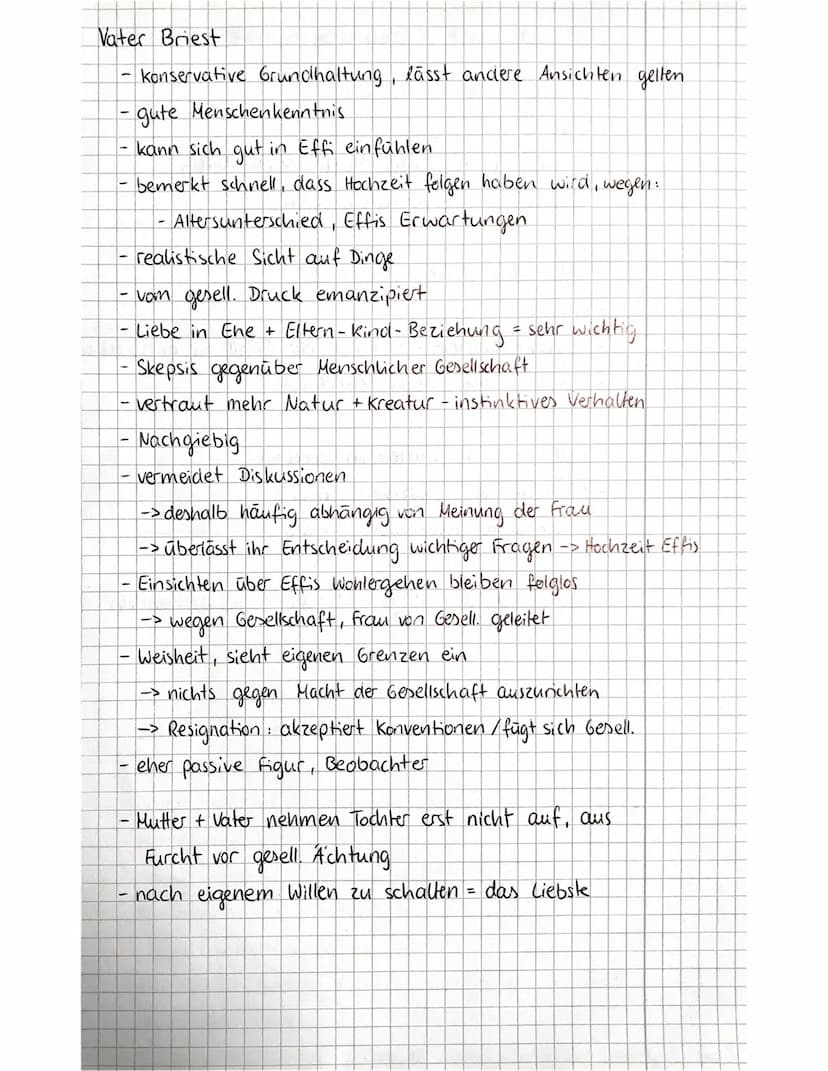 Vater Briest
- konservative Grundhaltung, lässt andere Ansichten gelten
- gute Menschenkenntnis
- kann sich gut in Effi einfühlen
- bemerkt schnell, dass Hochzeit folgen haben wird, wegen:
- Altersunterschied, Effis Erwartungen
- realistische Sicht auf Dinge
- vom gesell. Druck emanzipiert
- Liebe in Ehe + Eltern-Kind-Beziehung = sehr wichtig
- Skepsis gegenüber Menschlicher Gesellschaft
- vertraut mehr Natur + Kreatur - instinktives Verhalten
- Nachgiebig
- vermeidet Diskussionen
-> deshalb häufig abhängig von Meinung der Frau
-> überlässt ihr Entscheidung wichtiger Fragen -> Hochzeit Effis
- Einsichten über Effis Wohlergehen bleiben folglos
-> wegen Gesellschaft, Frau von Gesell. geleitet
- Weisheit, sieht eigenen Grenzen ein
-> nichts gegen Macht der Gesellschaft auszurichten
-> Resignation: akzeptiert Konventionen / fügt sich Gesell.
- eher passive Figur, Beobachter
- Mutter + Vater nehmen Tochter erst nicht auf, aus
Furcht vor gesell. Ächtung
- nach eigenem Willen zu schalten = das Liebste